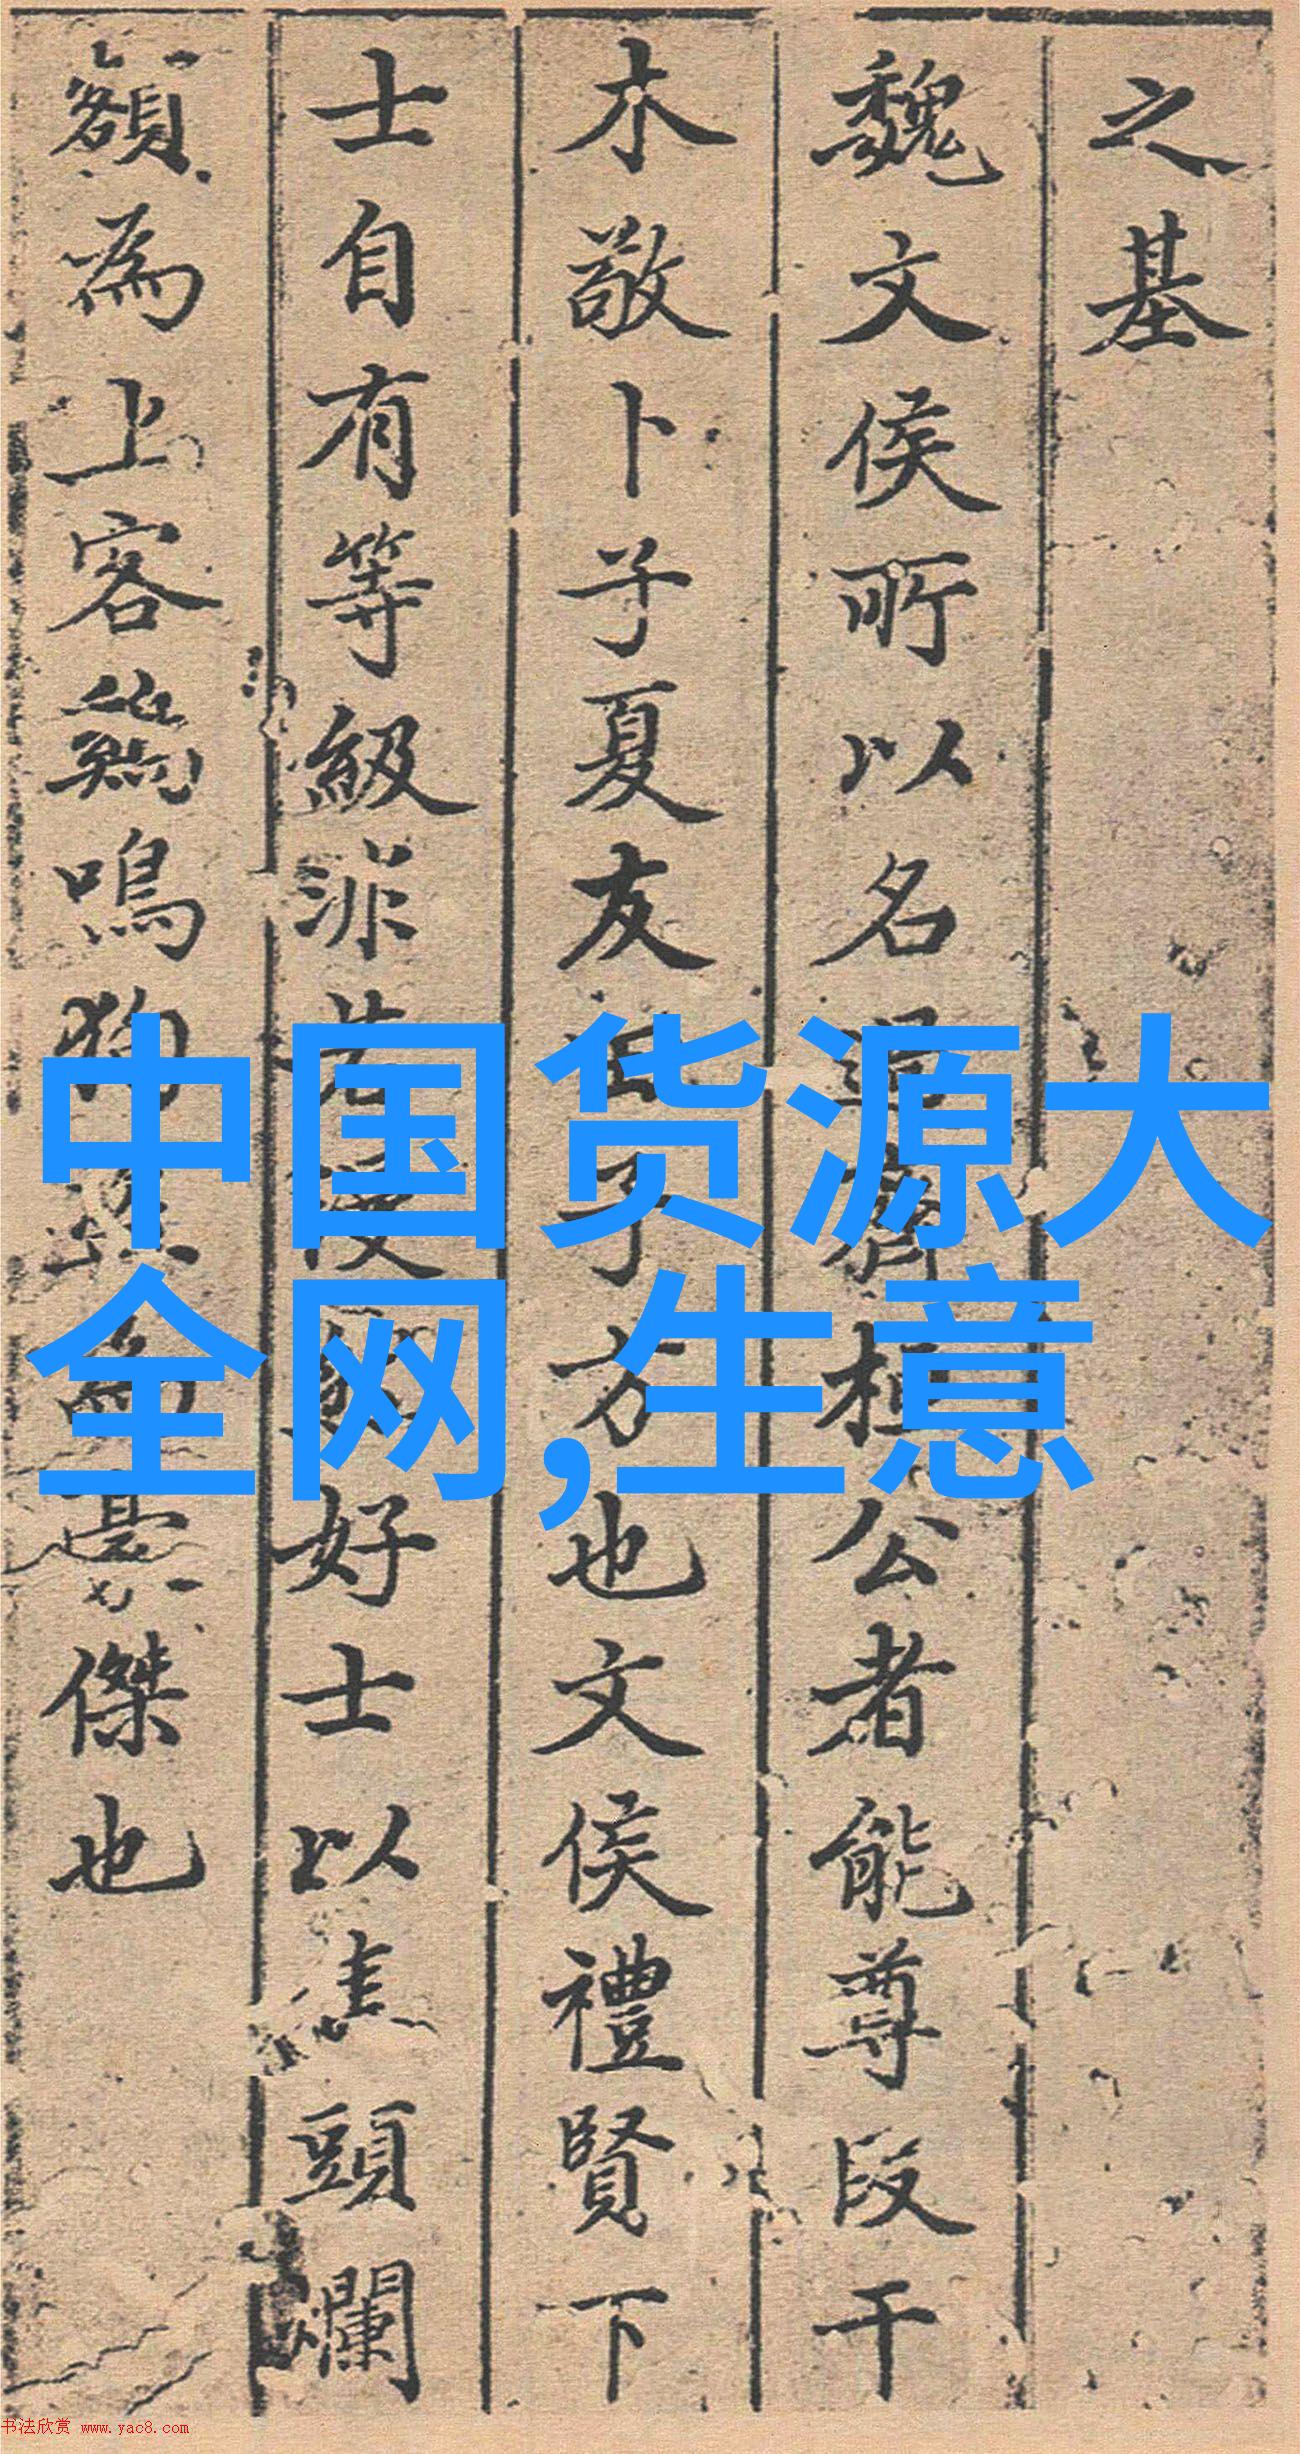 之基
魏文侯所以名過齊桓公者能尊段干
木敬卜子夏友田子方也文侯禮賢下
士自有等級非若後好士以焦頭爛
額為上客鷄鳴狗盜為豪傑也
中国货源大
全网,生意
书法欣赏 www.yac8.com